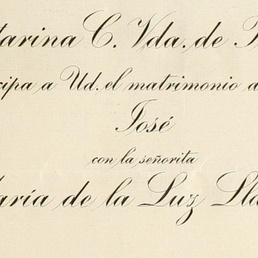 tarina C. Vda. de
cipa a Ud. el matrimonio
José
con la señorita
María de la Luz